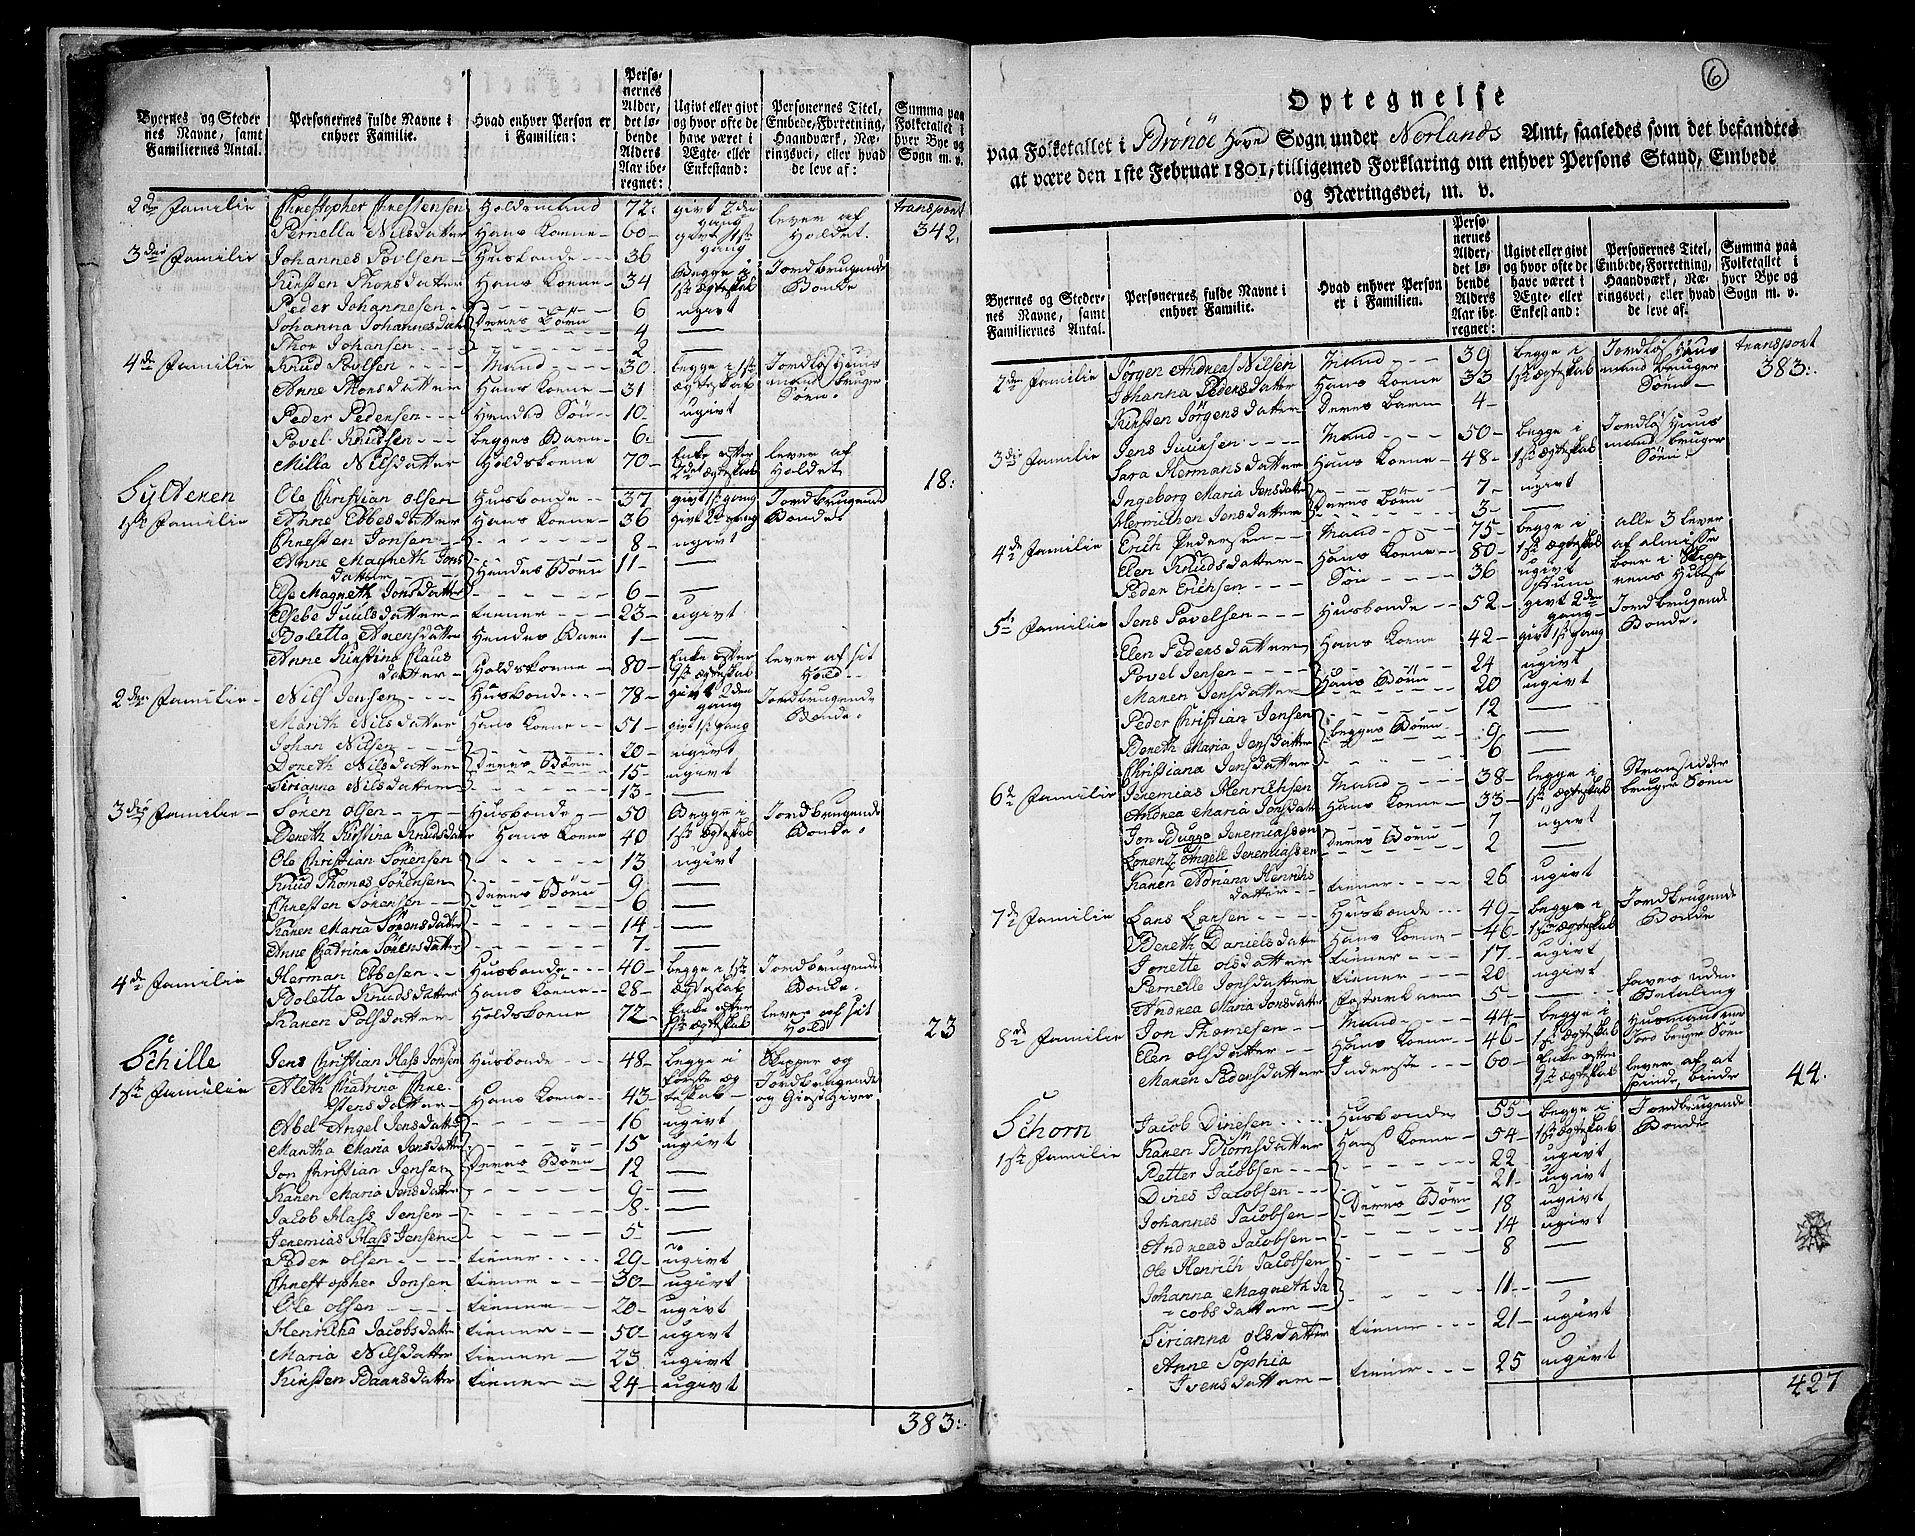 Byernes og Steder nes Navne, samt Familiernes Antal.
Personernes fulde Navne i enhver Familie.
Hvad enhver Person er i Familien:
Personernes Alder, det løbende Alders Aar iberegnet:
Ugivt eller givt og hvor ofte de have været i Ægte- eller Enkestand:
Personernes Titel, Embede, Forretning, Haandværk, Næringsvei, eller hvad de leve af:
Summa paa Folketallet i hver Bye og Sogn m. v.
2den Familie Christopher Christensen Holdsmand 72 givt 2den gang lever af Holdet transport 342.
Pernella Nilsdatter Hans Koene 60 givt 1ste gang
3die Familie Johannes Povlsen Husbonde 36 Begge i 1ste ægteskab Jordbrugende Bonde
Kirsten Thorsdatter Hans Koene 34
Peder Johannesen 6 ugivt
Johanna Johannesdatter Deres Börn 4 —
Thor Johansen 2
4de Familie Knud Povlsen Mand 30 begge i 1ste ægteskab Jordlös Huusmand bruger Söen
Anne Thorsdatter Hans Koene 31
Peder Pedersen Hendes Sön 10 ugivt
Povel Knudsen begges Barn 6 —
Milla Nilsdatter Holdskoene 70 Enke efter 2det ægteskab lever af Holdet
18:
Sylteren
1ste Familie Ole Christian Olsen Husbonde 37 givt 1ste gang Jordbrugende Bonde
Anne Ebbesdatter Hans Koene 36 givt 2den gang
Christen Jonsen 8 ugivt
Anne Magneth Jonsdatter Hendes Börn 11 —
Else Magneth Jonsdatter 6 —
Elsebe Juulsdatter tiener 23 ugivt
Boletta Arensdatter Hendes Barn 1 —
Anne Kirstina Clausdatter Holdskoene 80 Enke efter 1ste ægteskab lever af sit Hold
2den Familie Nils Jensen Husbonde 78 givt 2den gang Jordbrugende Bonde
Marith Nilsdatter Hans Koene 51 givt 1ste gang
Johan Nilsen 20 ugivt
Doreth Nilsdatter Deres Börn 15 ugivt
Sirianna Nilsdatter 13 —
3die Familie Sören Olsen Husbonde 50 Begge i 1ste ægteskab Jordbrugende Bonde
Bereth Kirstina Knudsdatter Hans Koene 40
Ole Christian Sörensen 13 ugivt
Knud Thomas Sörensen 9 —
Christen Sörensen Deres Börn 6 —
Karen Maria Sörensdatter 14 —
Anne Chatrina Sörensdatter 7 —
4de Familie Herman Ebbesen Husbonde 40 begge i 1ste ægteskab Jordbrugende Bonde
Boletta Knudsdatter Hans Koene 28
Karen Polsdatter Holdskoene 72 Enke efter 1ste ægteskab lever af sit Hold
23
Schille
1ste Familie Jens Christian Hass Jonsen Husbonde 48 begge i förste ægteskab Skipper og Jordbrugende og Giestgiver
Aleth Chatrina Christensdatter Hans Koene 43
Abel Angel Jensdatter 16 ugivt
Martha Maria Jensdatter 15 ugivt
Jon Christian Jensen Deres Börn 12 —
Karen Maria Jensdatter 9 —
Jacob Hass Jensen 8 —
Jeremias Hass Jensen 5 —
Peder Olsen tiener 29 ugivt
Christopher Jonsen tiener 30 ugivt
Ole Olsen tiener 20 ugivt
Henricha Jacobsdatter tiener 50 ugivt
Maria Nilsdatter tiener 23 ugivt
Kirsten Baarsdatter tiener 24 ugivt
383:
6
Optegnelse
paa Folketallet i Brönöe Hoved Sogn under Norlands Amt, saaledes som det befandtes
at være den 1ste Februar 1801, tilligemed Forklaring om enhver Persons Stand, Embede
og Næringsvei, m. v.
Byernes og Steder-nes Navne, samt Familiernes Antal.
Personernes fulde Navne i enhver Familie.
Hvad enhver Person er i Familien.
Personernes Alder, det løbende Alders Aar iberegnet:
Ugivt eller givt og hvor ofte de have været i Ægte- eller Enkestand:
Personernes Titel, Embede, Forretning, Haandværk, Næringsvei, eller hvad de leve af.
Summa paa Folketallet i hver Bye og Sogn m. v.
2den Familie Jörgen Andreas Nilsen Mand 39 begge i 1ste ægteskab Jordlös Huusmand bruger Söen transport 383:
Johanna Pedersdatter Hans Koene 33
Kirsten Jörgensdatter Deres Barn 4
3die Familie Jens Juulsen Mand 50 begge i 1ste ægteskab Jordlös Huusmand bruger Söen
Sara Hermansdatter Hans Koene 48
Ingeborg Maria Jensdatter 7 ugivt
Hermichen Jensdatter Deres Börn 3 —
4de Familie Erich Pedersen Mand 75 begge i 1ste ægteskab alle 3 lever af almisse
Elen Knudsdatter Hans Koene 80
Peder Erichsen Sön 36 ugivt
5te Familie Jens Povelsen Husbonde 52 givt 2den gang Jordbrugende Bonde
Elen Pedersdatter Hans Koene 42 givt 1ste gang
Povel Jensen 24 ugivt
Maren Jensdatter Hans Börn 20 ugivt
Peder Christian Jensen 12 —
Bereth Maria Jensdatter begges Börn 9 —
Christiana Jensdatter 6
6te Familie Jeremias Henrichsen Mand 38 begge i 1ste ægteskab Stransidder bruger Söen
Andrea Maria Jonsdatter Hans Koene 33
Jon Bugge Jeremiassen 7 ugivt
Lorentz Angell Jeremiassen Deres Börn 2 —
Karen Adriana Henrichsdatter tiener 26 ugivt
7de Familie Lars Larsen Husbonde 49 begge i 1ste ægteskab Jordbrugende Bonde
Bereth Danielsdatter Hans Koene 46
Jonette Olsdatter tiener 17 ugivt
Pernelle Jonsdatter tiener 20 ugivt
Andrea Maria Jonsdatter Fosterbarn 5 — haves uden Betaling
8de Familie Jon Thomesen Mand 44 begge i 1ste ægteskab Huusmand uden Jord bruger Söen
Elen Olsdatter Hans Koene 46
Maren Pedersdatter Inderste 60 Enke efter 1ste ægteskab lever af at spinde, binde
44.
Schorn
1ste Familie Jacob Dinesen Husbonde 55 begge i 1ste ægteskab Jordbrugende Bonde
Karen Biörnsdatter Hans Koene 54
Petter Jacobsen 22 ugivt
Dines Jacobsen 21 ugivt
Johannes Jacobsen Deres Börn 18 ugivt
Andreas Jacobsen 14 ugivt
Ole Henrich Jacobsen 8 —
Johanna Magneth Jacobsdatter 11 —
Sirianna Olsdatter tiener 21 ugivt
Anne Sophia Iversdatter tiener 25 ugivt
427